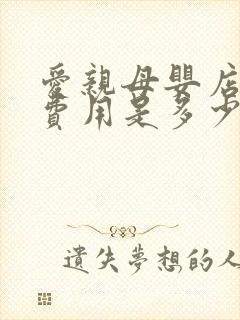 愛親母嬰店
費用是多少
遺失夢想的人